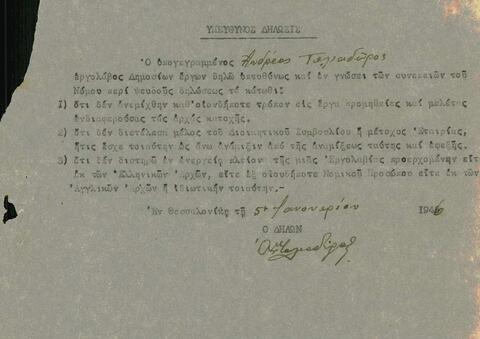 ΥΠΕΥΘΥΝΟΣ ΔΗΛΩΣΙΣ
Ὁ ὑπογεγραμμένος Ἀνδρέας
ἐργολάβος Δημοσίων ἔργων δηλῶ ὑπευθύνως καί ἐν γνώσει τῶν συνεπειῶν τοῦ
Νόμου περί ψευδοῦς δηλώσεως τά κάτωθι:
1) ὅτι δέν ἀνεμίχθην καθ'οἱονδήποτε τρόπον είς ἔργα προμηθείας καί μελέτας
ἐνδιαφερούσας τάς ἀρχάς κατοχῆς.
2) ὅτι δέν διετέλεσα μέλος τοῦ Διοικητικοῦ Συμβουλίου ἤ μέτοχος Ἑταιρίας,
ἥτις ἔσχε τοιαύτην ὡς ἄνω ἀνάμιξιν ἀπό τῆς ἀναμίξεως ταύτης καί ἐφεξῆς.
3) ὅτι δέν διατηρῶ ἐν ἐνεργείᾳ πλείον τῆς μιᾶς Ἐργολαβίας προερχομένην εἴτε
ἐκ τῶν Ἑλληνικῶν Ἀρχῶν, εἴτε ἐξ οἱουδήποτε Νομικοῦ Προσώπου εἴτε ἐκ τῶν
Ἀγγλικῶν Ἀρχῶν ἤ ἰδιωτικήν τοιαύτην.-
Ἐν Θεσσαλονίκῃ τῇ 5ῃ Ἰανουαρίου 1946
Ὁ ΔΗΛΩΝ